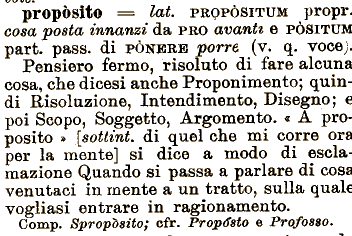 propòsito = lat. PROPÒSITUM propr.
cosa posta innanzi da PRO avanti e PÒSITUM
part. pass. di PÒNERE porre (v. q. voce).
Pensiero fermo, risoluto di fare alcuna
cosa, che dicesi anche Proponimento; quin-
di Risoluzione, Intendimento, Disegno; e
poi Scopo, Soggetto, Argomento. « A pro-
posito » [sottint. di quel che mi corre ora
per la mente] si dice a modo di escla-
mazione Quando si passa a parlare di cosa
venutaci in mente a un tratto, sulla quale
vogliasi entrare in ragionamento.
Comp. Spropòsito; cfr. Propósto e Profosso.